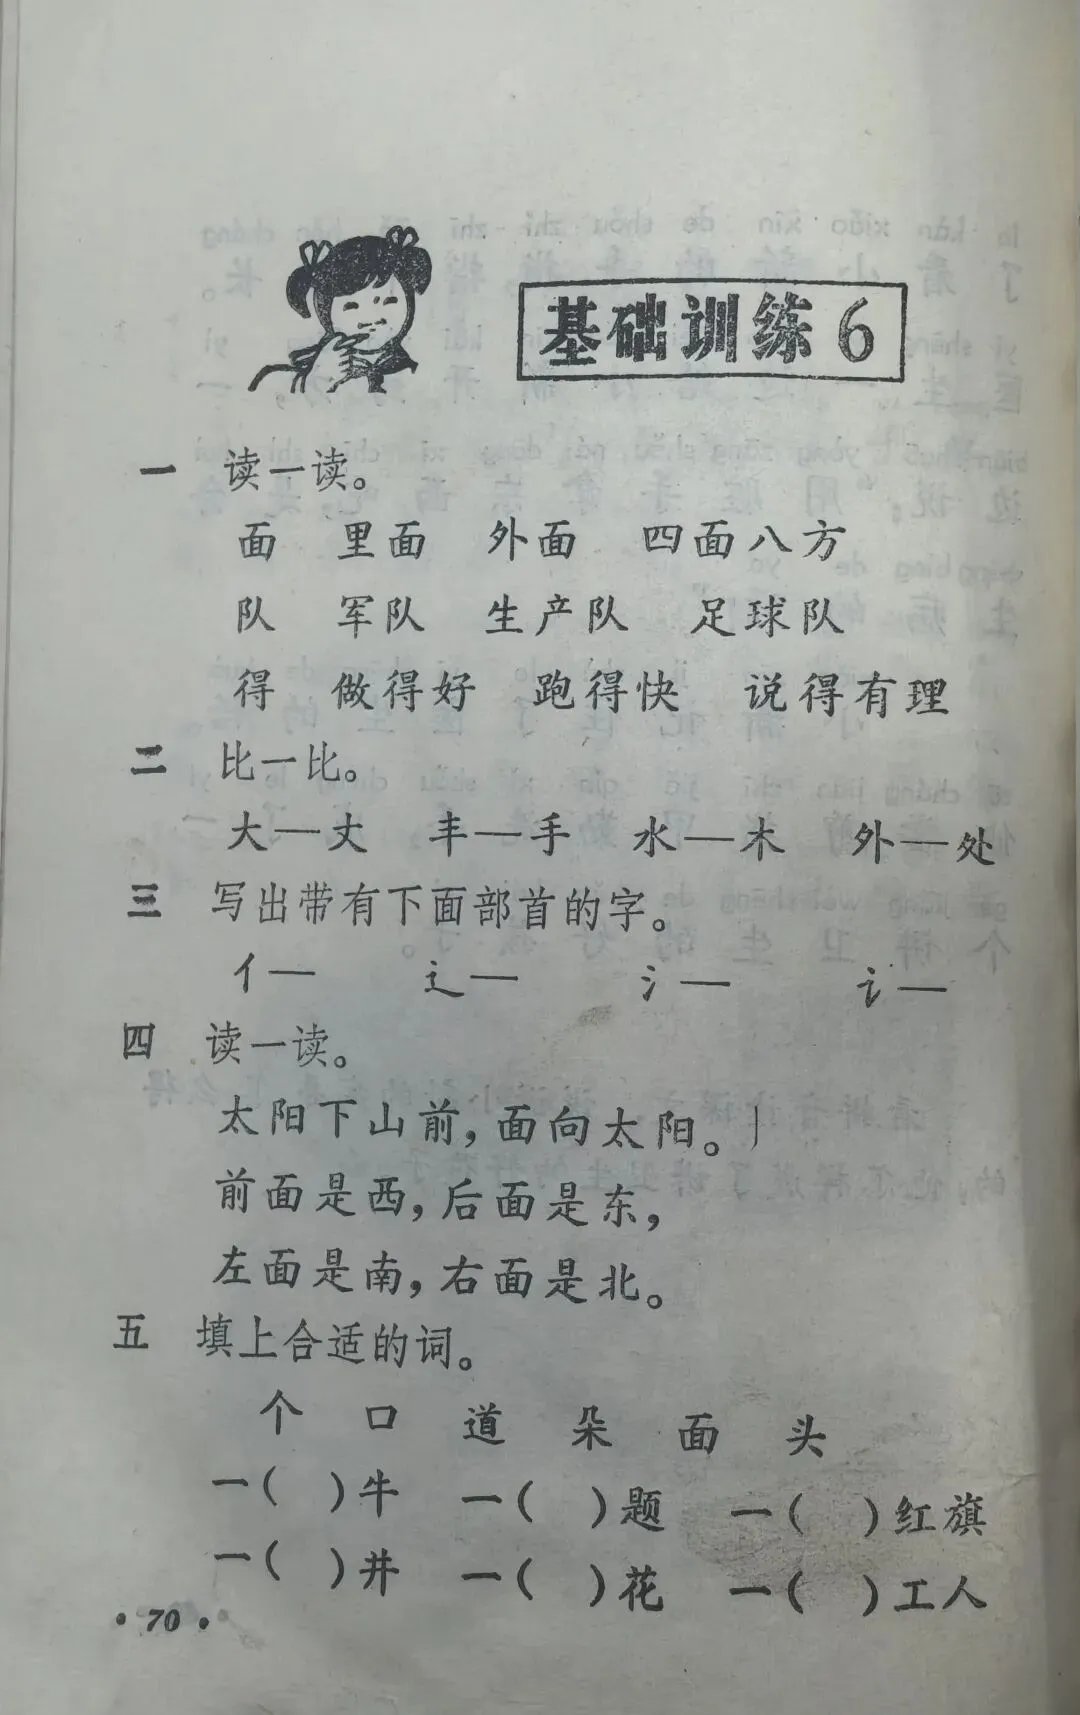 基础训练6
一 读一读。
面 里面 外面 四面八方
队 军队 生产队 足球队
得 做得好 跑得快 说得有理
二 比一比。
大—丈 丰—手 水—木 外—处
三 写出带有下面部首的字。
亻— 辶— 氵— 讠—
四 读一读。
太阳下山前,面向太阳。
前面是西,后面是东,
左面是南,右面是北。
五 填上合适的词。
个 口 道 朵 面 头
一( )牛 一( )题 一( )红旗
一( )井 一( )花 一( )工人
·70·